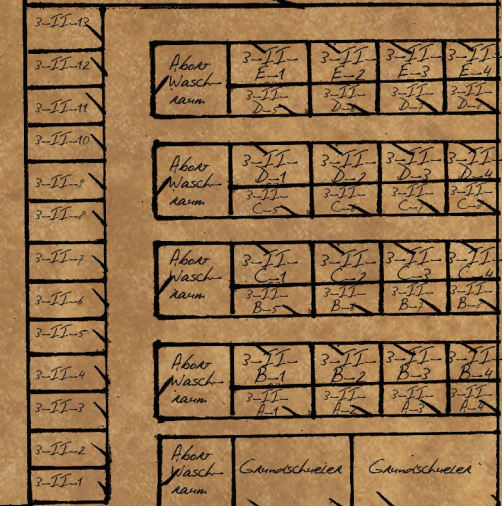 3-II-13
3-II-12
3-II-11
3-II-10
3-II-9
3-II-8
3-II-7
3-II-6
3-II-5
3-II-4
3-II-3
3-II-2
3-II-1
Abort
Wasch-
raum
3-II-
E-1
3-II-
E-2
3-II-
E-3
3-II-
E-4
3-II-
D-5
3-II-
3-II-
D-7
3-II-
Abort
Wasch-
raum
3-II-
D-1
3-II-
D-2
3-II-
D-3
3-II-
D-4
3-II-
C-5
3-II-
C-6
3-II-
C-7
3-II-
C-8
Abort
Wasch-
raum
3-II-
C-1
3-II-
C-2
3-II-
C-3
3-II-
C-4
3-II-
B-5
3-II-
B-6
3-II-
B-7
3-II-
Abort
Wasch-
raum
3-II-
B-1
3-II-
B-2
3-II-
B-3
3-II-
B-4
3-II-
A-1
3-II-
A-2
3-II-
A-3
3-II-
A-4
Abort
Wasch-
raum
Grundschueler
Grundschueler